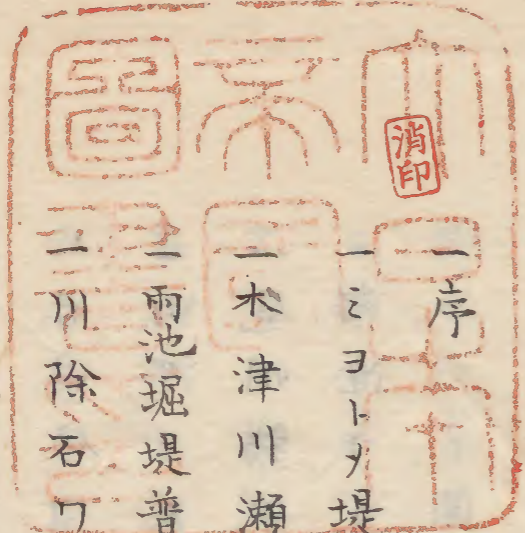 一序
一ミヨトメ堤
一木津川瀬
一雨池堀堤普
一川除石ワ
消印